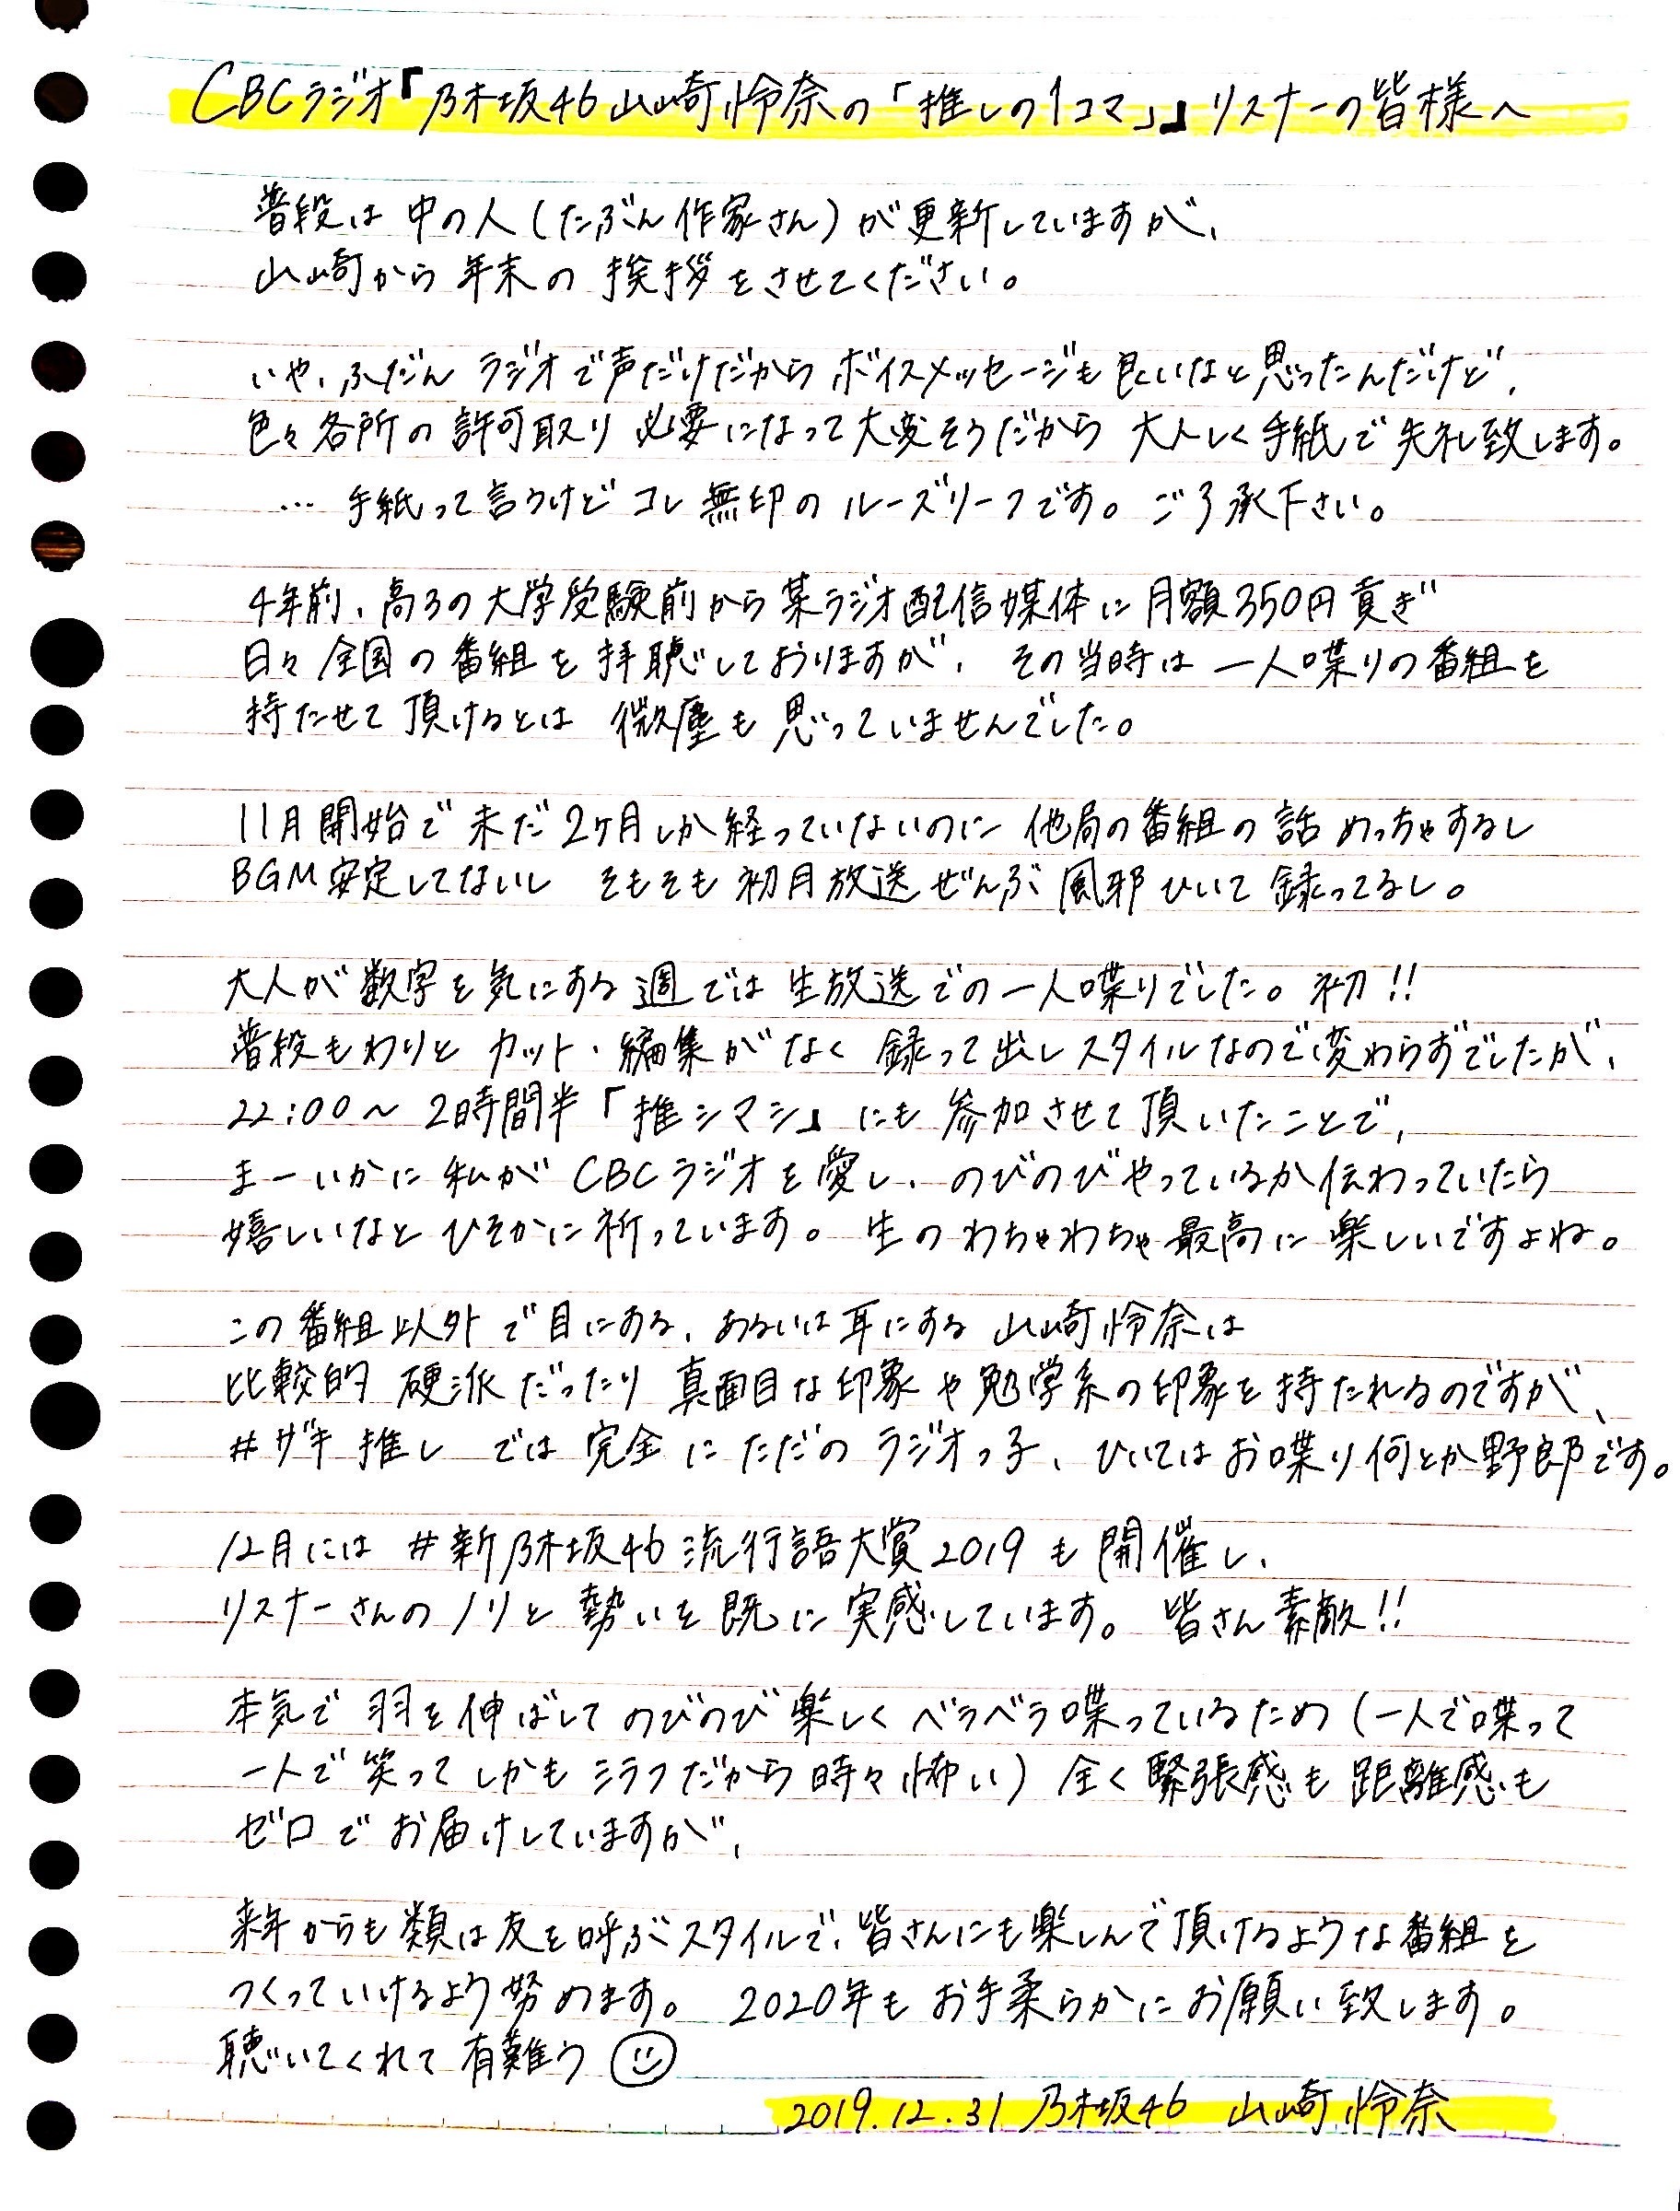 CBCラジオ『乃木坂46山崎怜奈の「推しの1コマ」』リスナーの皆様へ
普段は中の人(たぶん作家さん)が更新していますが、
山崎から年末の挨拶をさせてください。
いや、ふだんラジオで声だけだからボイスメッセージも良いなと思ったんだけど、
色々各所の許可取り必要になって大変そうだから大人しく手紙で失礼致します。
…手紙って言うけどコレ無印のルーズリーフです。ご了承下さい。
4年前、高3の大学受験前から某ラジオ配信媒体に月額350円貢ぎ
日々全国の番組を拝聴しておりますが、その当時は一人喋りの番組を
持たせて頂けるとは微塵も思っていませんでした。
11月開始で未だ2ヶ月しか経っていないのに他局の番組の話めっちゃするし
BGM安定してないしそもそも初月放送ぜんぶ風邪ひいて録ってるし。
大人が数字を気にする週では生放送での一人喋りでした。初!!
普段もわりとカット・編集がなく録って出しスタイルなので変わらずでしたが、
22:00〜2時間半「推シマシ」にも参加させて頂いたことで、
まーいかに私がCBCラジオを愛し、のびのびやっているか伝わっていたら
嬉しいなとひそかに祈っています。生のわちゃわちゃ最高に楽しいですよね。
この番組以外で目にする、あるいは耳にする山崎怜奈は
比較的硬派だったり真面目な印象や勉学系の印象を持たれるのですが、
#ザキ推しでは完全にただのラジオっ子、ひいてはお喋り何とか野郎です。
12月には#新乃木坂46流行語大賞2019も開催し、
リスナーさんのノリと勢いを既に実感しています。皆さん素敵!!
本気で羽を伸ばしてのびのび楽しくベラベラ喋っているため(一人で喋って
一人で笑ってしかもシラフだから時々怖い)全く緊張感も距離感も
ゼロでお届けしていますが、
来年からも類は友を呼ぶスタイルで、皆さんにも楽しんで頂けるような番組を
つくっていけるよう努めます。2020年もお手柔らかにお願い致します。
聴いてくれて有難う
2019.12.31 乃木坂46 山崎怜奈